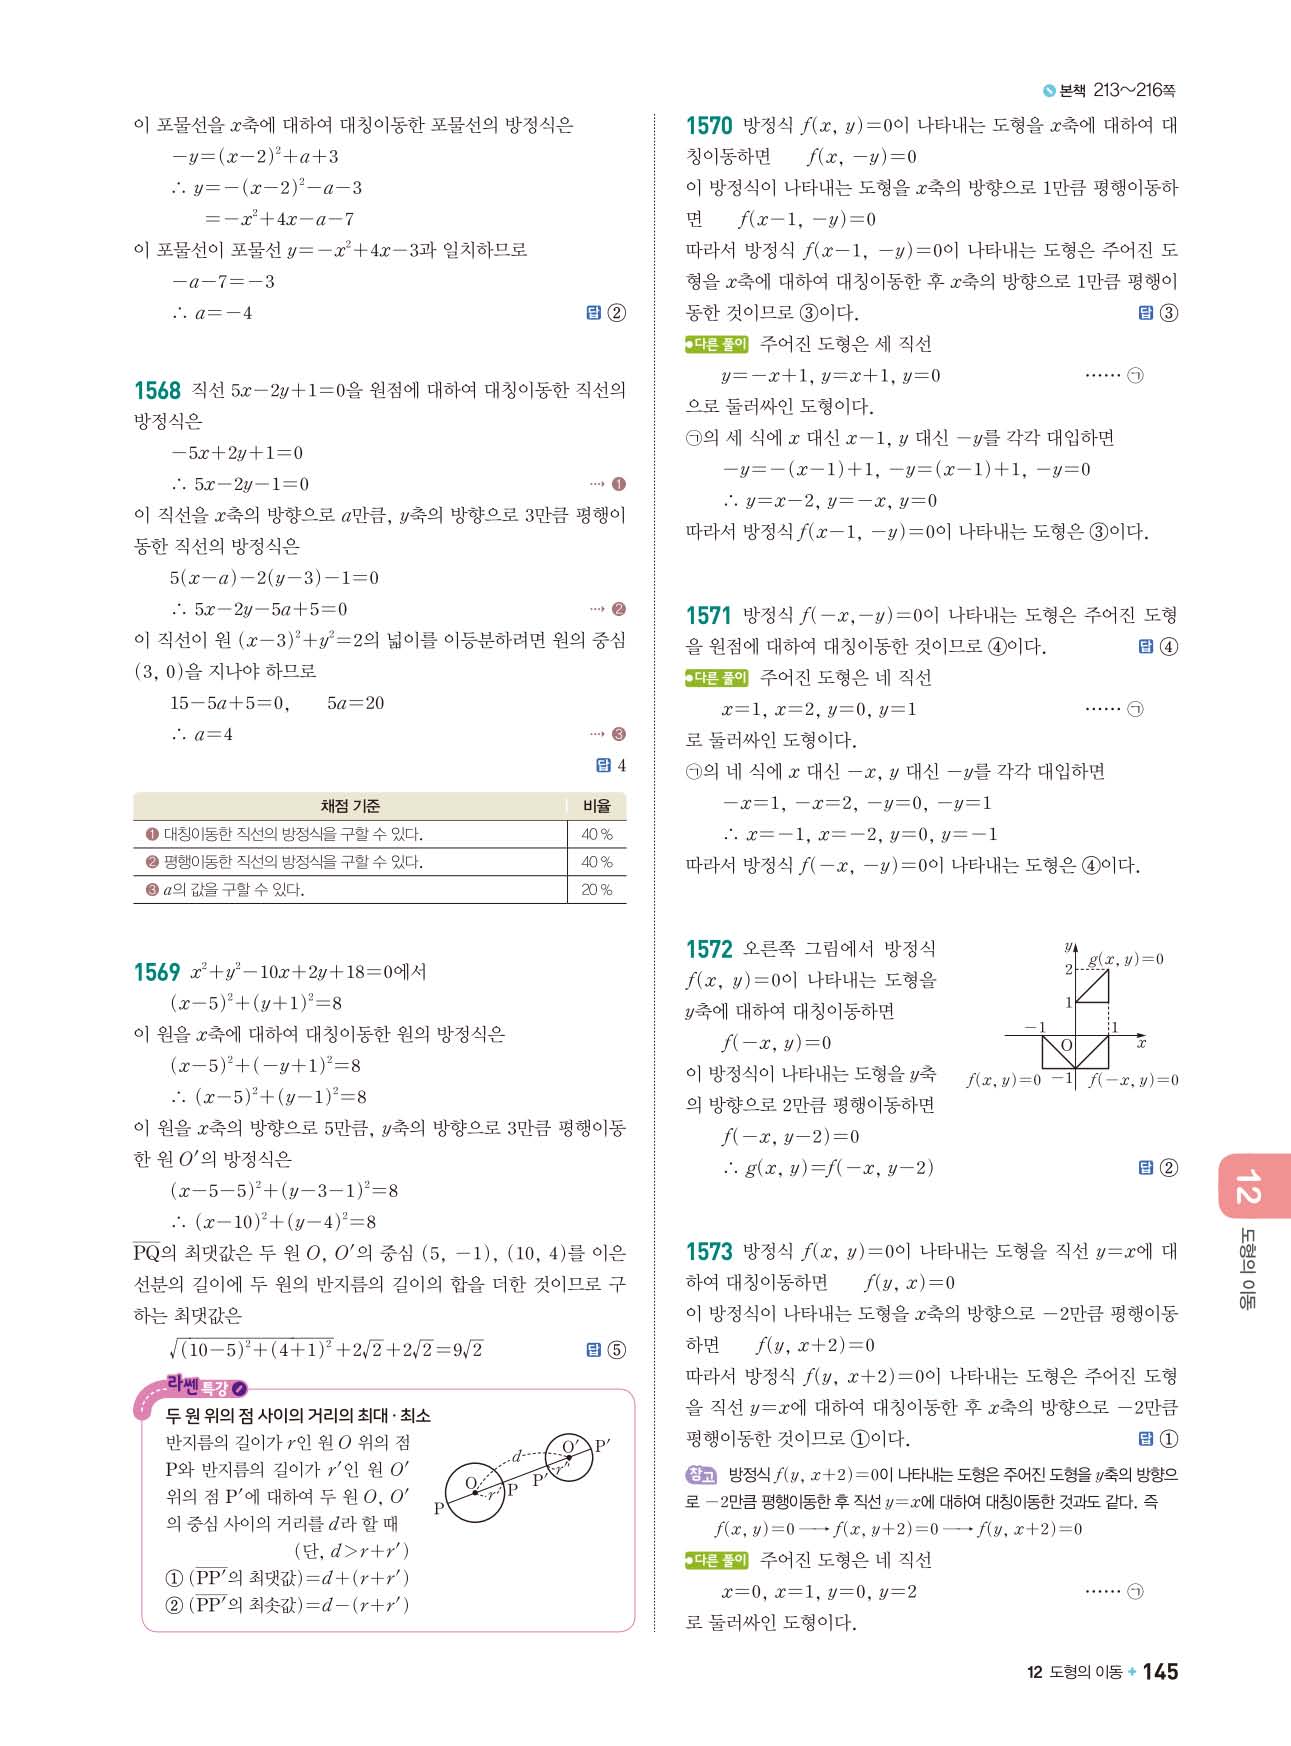 본책 213~216쪽
이 포물선을 x축에 대하여 대칭이동한 포물선의 방정식은
-y=(x-2)²+a+3
∴ y=-(x-2)²-a-3
=-x²+4x-a-7
이 포물선이 포물선 y=-x²+4x-3과 일치하므로
-a-7=-3
∴ a=-4 답 ②
1568 직선 5x-2y+1=0을 원점에 대하여 대칭이동한 직선의
방정식은
-5x+2y+1=0
∴ 5x-2y-1=0 ⋯→ ❶
이 직선을 x축의 방향으로 a만큼, y축의 방향으로 3만큼 평행이
동한 직선의 방정식은
5(x-a)-2(y-3)-1=0
∴ 5x-2y-5a+5=0 ⋯→ ❷
이 직선이 원 (x-3)²+y²=2의 넓이를 이등분하려면 원의 중심
(3, 0)을 지나야 하므로
15-5a+5=0, 5a=20
∴ a=4 ⋯→ ❸
답 4
채점 기준 비율
❶ 대칭이동한 직선의 방정식을 구할 수 있다. 40 %
❷ 평행이동한 직선의 방정식을 구할 수 있다. 40 %
❸ a의 값을 구할 수 있다. 20 %
1569 x²+y²-10x+2y+18=0에서
(x-5)²+(y+1)²=8
이 원을 x축에 대하여 대칭이동한 원의 방정식은
(x-5)²+(-y+1)²=8
∴ (x-5)²+(y-1)²=8
이 원을 x축의 방향으로 5만큼, y축의 방향으로 3만큼 평행이동
한 원 O′의 방정식은
(x-5-5)²+(y-3-1)²=8
∴ (x-10)²+(y-4)²=8
P̅Q̅의 최댓값은 두 원 O, O′의 중심 (5, -1), (10, 4)를 이은
선분의 길이에 두 원의 반지름의 길이의 합을 더한 것이므로 구
하는 최댓값은
√((10-5)²+(4+1)²)+2√2+2√2=9√2 답 ⑤
라쎈 특강
두 원 위의 점 사이의 거리의 최대·최소
반지름의 길이가 r인 원 O 위의 점
P와 반지름의 길이가 r′인 원 O′
위의 점 P′에 대하여 두 원 O, O′
의 중심 사이의 거리를 d라 할 때
(단, d>r+r′)
① (P̅P̅′의 최댓값)=d+(r+r′)
② (P̅P̅′의 최솟값)=d-(r+r′)
P O r P d P′ r′ O′ P′
1570 방정식 f(x, y)=0이 나타내는 도형을 x축에 대하여 대
칭이동하면 f(x, -y)=0
이 방정식이 나타내는 도형을 x축의 방향으로 1만큼 평행이동하
면 f(x-1, -y)=0
따라서 방정식 f(x-1, -y)=0이 나타내는 도형은 주어진 도
형을 x축에 대하여 대칭이동한 후 x축의 방향으로 1만큼 평행이
동한 것이므로 ③이다. 답 ③
다른 풀이 주어진 도형은 세 직선
y=-x+1, y=x+1, y=0 ⋯⋯ ㉠
으로 둘러싸인 도형이다.
㉠의 세 식에 x 대신 x-1, y 대신 -y를 각각 대입하면
-y=-(x-1)+1, -y=(x-1)+1, -y=0
∴ y=x-2, y=-x, y=0
따라서 방정식 f(x-1, -y)=0이 나타내는 도형은 ③이다.
1571 방정식 f(-x,-y)=0이 나타내는 도형은 주어진 도형
을 원점에 대하여 대칭이동한 것이므로 ④이다. 답 ④
다른 풀이 주어진 도형은 네 직선
x=1, x=2, y=0, y=1 ⋯⋯ ㉠
로 둘러싸인 도형이다.
㉠의 네 식에 x 대신 -x, y 대신 -y를 각각 대입하면
-x=1, -x=2, -y=0, -y=1
∴ x=-1, x=-2, y=0, y=-1
따라서 방정식 f(-x, -y)=0이 나타내는 도형은 ④이다.
1572 오른쪽 그림에서 방정식
f(x, y)=0이 나타내는 도형을
y축에 대하여 대칭이동하면
f(-x, y)=0
이 방정식이 나타내는 도형을 y축
의 방향으로 2만큼 평행이동하면
f(-x, y-2)=0
∴ g(x, y)=f(-x, y-2) 답 ②
y
2 g(x, y)=0
1
-1 O 1 x
f(x, y)=0 -1 f(-x, y)=0
1573 방정식 f(x, y)=0이 나타내는 도형을 직선 y=x에 대
하여 대칭이동하면 f(y, x)=0
이 방정식이 나타내는 도형을 x축의 방향으로 -2만큼 평행이동
하면 f(y, x+2)=0
따라서 방정식 f(y, x+2)=0이 나타내는 도형은 주어진 도형
을 직선 y=x에 대하여 대칭이동한 후 x축의 방향으로 -2만큼
평행이동한 것이므로 ①이다. 답 ①
참고 방정식 f(y, x+2)=0이 나타내는 도형은 주어진 도형을 y축의 방향으
로 -2만큼 평행이동한 후 직선 y=x에 대하여 대칭이동한 것과도 같다. 즉
f(x, y)=0 → f(x, y+2)=0 → f(y, x+2)=0
다른 풀이 주어진 도형은 네 직선
x=0, x=1, y=0, y=2 ⋯⋯ ㉠
로 둘러싸인 도형이다.
12
도형의 이동
12 도형의 이동 + 145